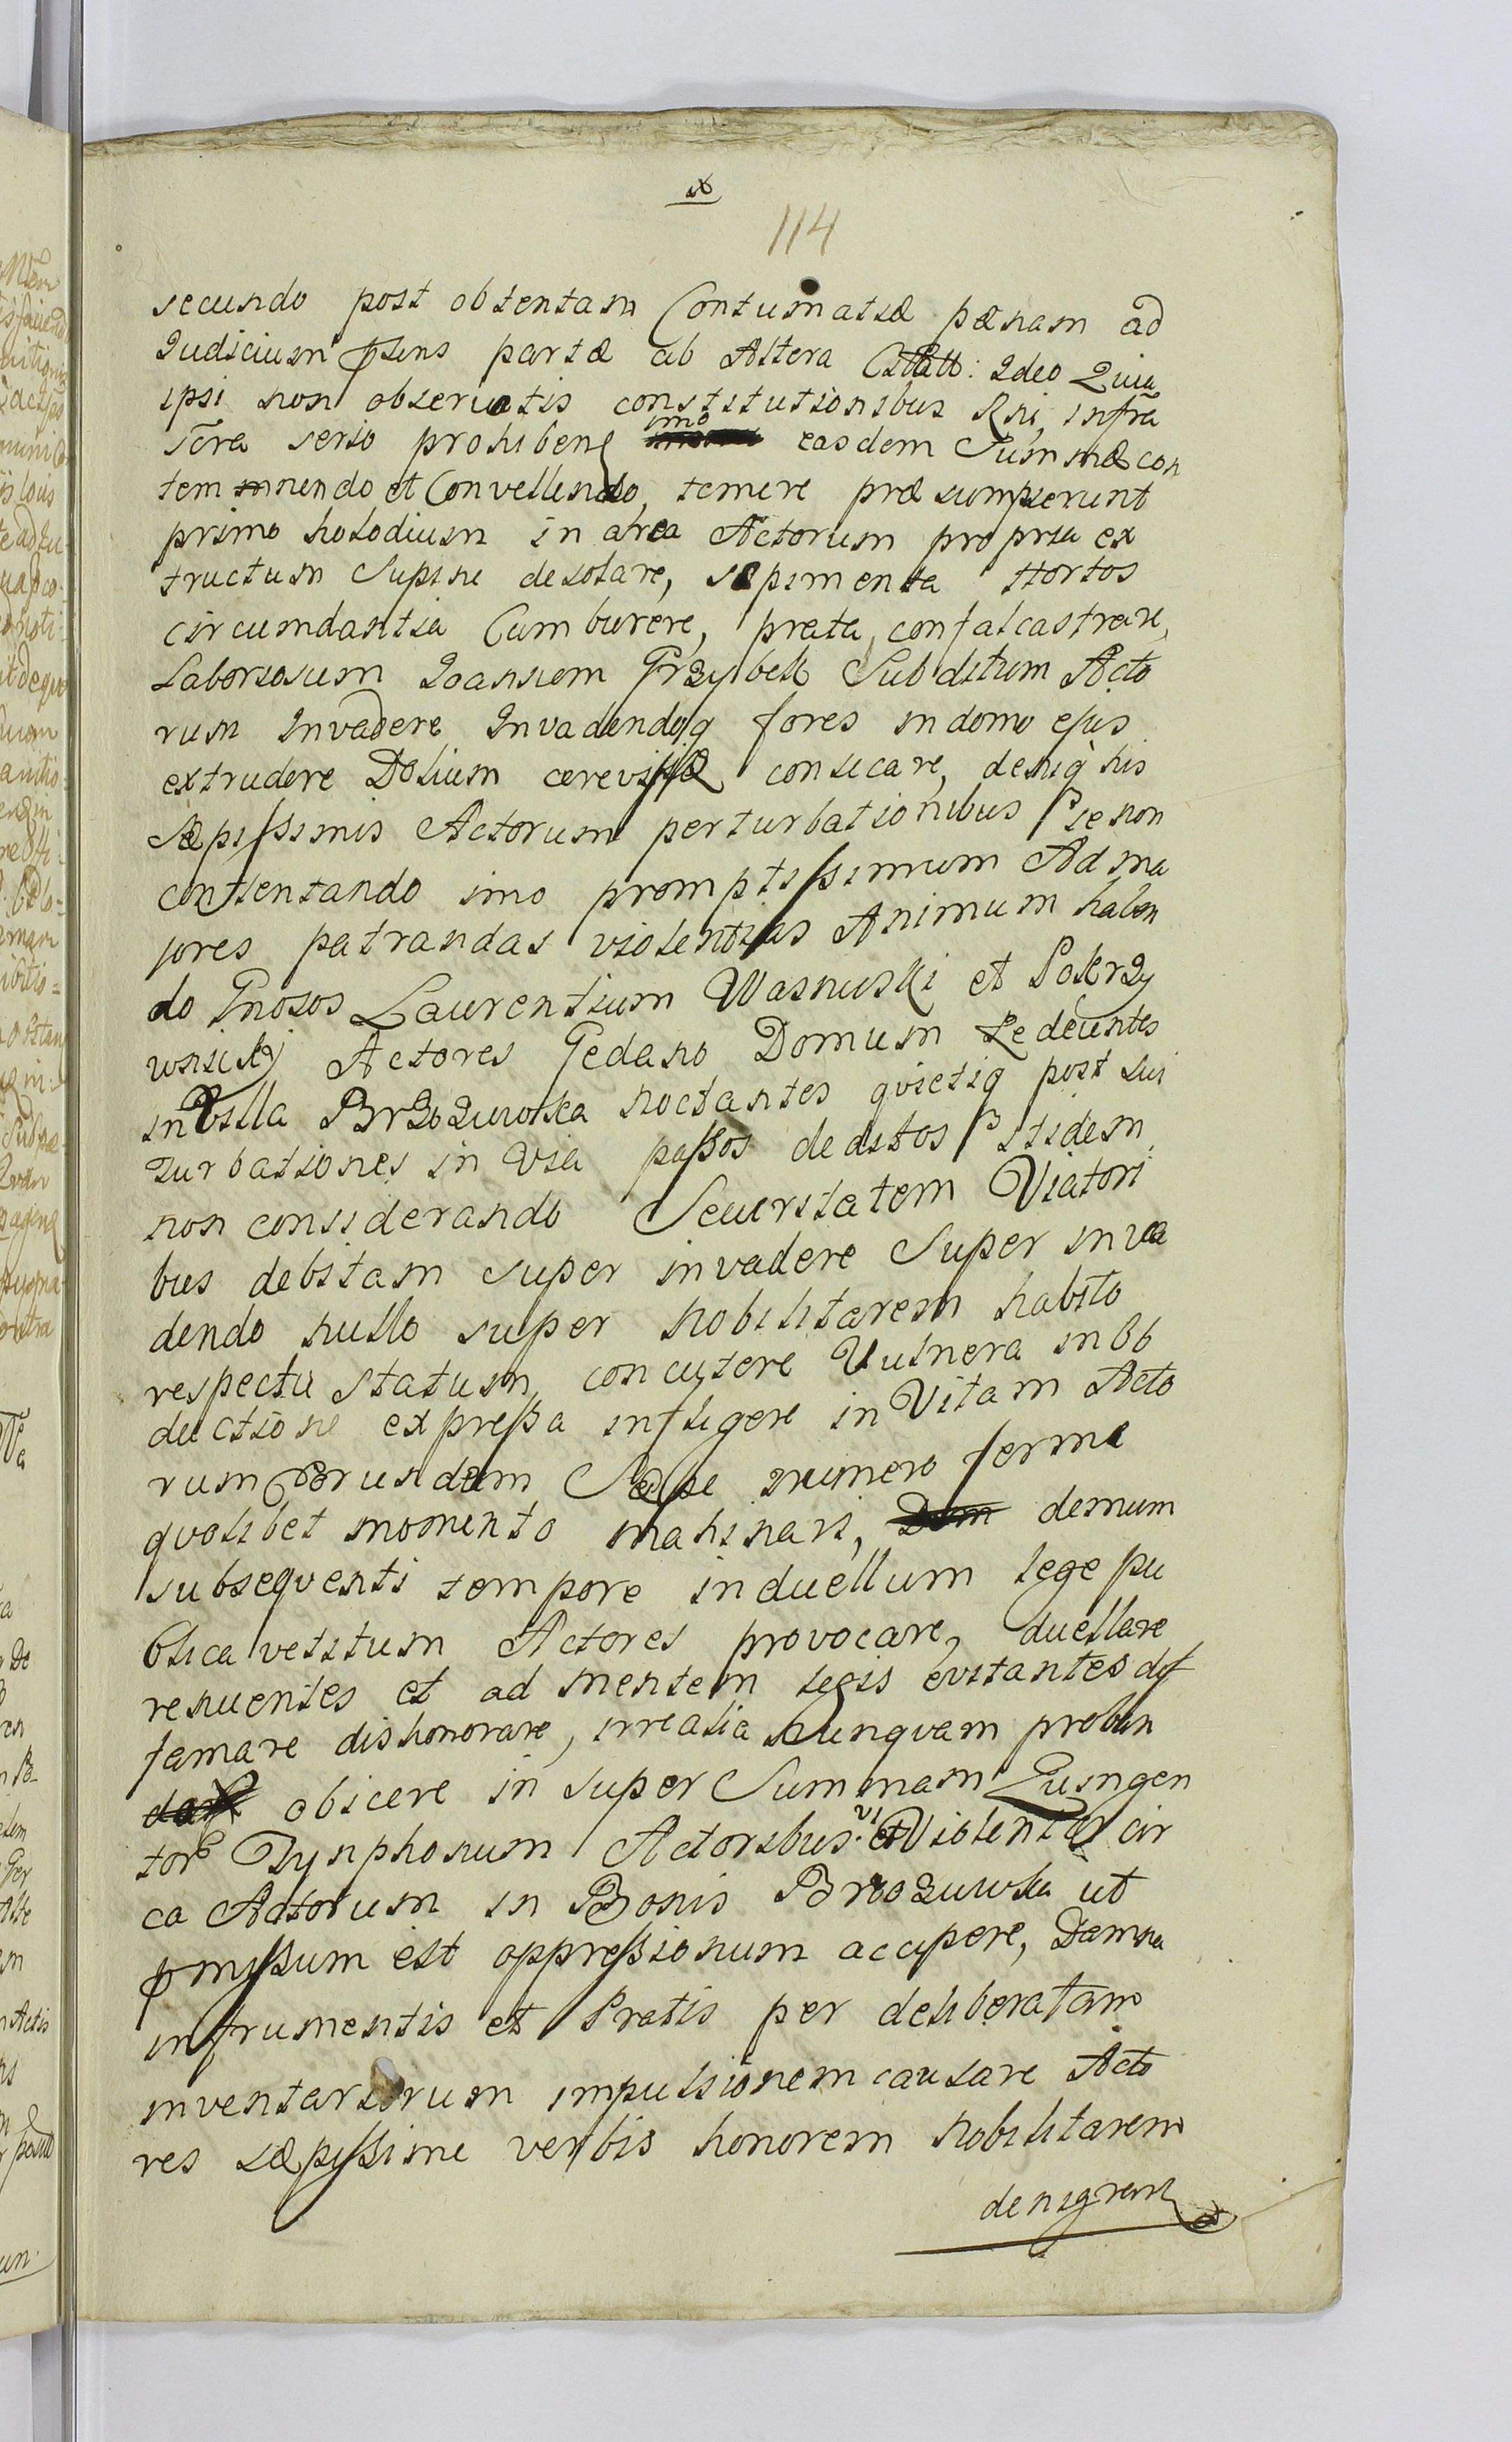 114
secundo post obtentam Contumatiæ pænam ad
Judicium pñens partæ ab Altera Cittatt: Ideo Quia
ipsi non observatis constitutionibus Rni, infra
scra serio prohiben imo easdem Summæ con
temnendo et Convellendo, temere præsumpserunt
primo holodium in area Actorum propria ex
tructum Supine desolare, sæpimenta Hortos
circumdantia Cumburere, prata, confalcastrare,
Laboriosum Joannem Przybek Subditum Acto
rum Invadere Invadendoq fores in domo ejus
extrudere Dolium cerevisiæ consecare, deniq his
sæpissimis Actorum perturbationibus se non
contentando imo promptissimum Ad ma
jores patrandas violentias Animum haben
do Gnosos Laurentium Wasnuski et Pokrzy
wnicki Actores Gedano Domum Redeuntes
in Villa Brzozuwska noctantes quietiq post sui
turbationes in Via passos deditos itidem
non considerando Securitatem Viatori
bus debitam super invadere Super inva
dendo nullo super nobilitarem habito
respectu statum, concutere Vulnera in ob
ductione expressa infligere in Vitam Acto
rum Eorundem Sæpe numero ferme
quolibet momento mahinari, demum
subsequenti tempore in duellum lege pu
blica vetitum Actores provocare, duellare
renuentes et ad mentem legis evitantes dif
famare dishonorare, irrealia nunquam proban
obicere in super Summam Quingen
tor Tynphonum Actoribus vi et Violenter cir
ca Actorum in Bonis Brzozuwska ut
pmissum est oppressionum accipere, Damna
in frumentis et Pratis per deliberatam
inventariorum impulsionem causare Acto
res sæpissime verbis honorem nobilitarem
denigren